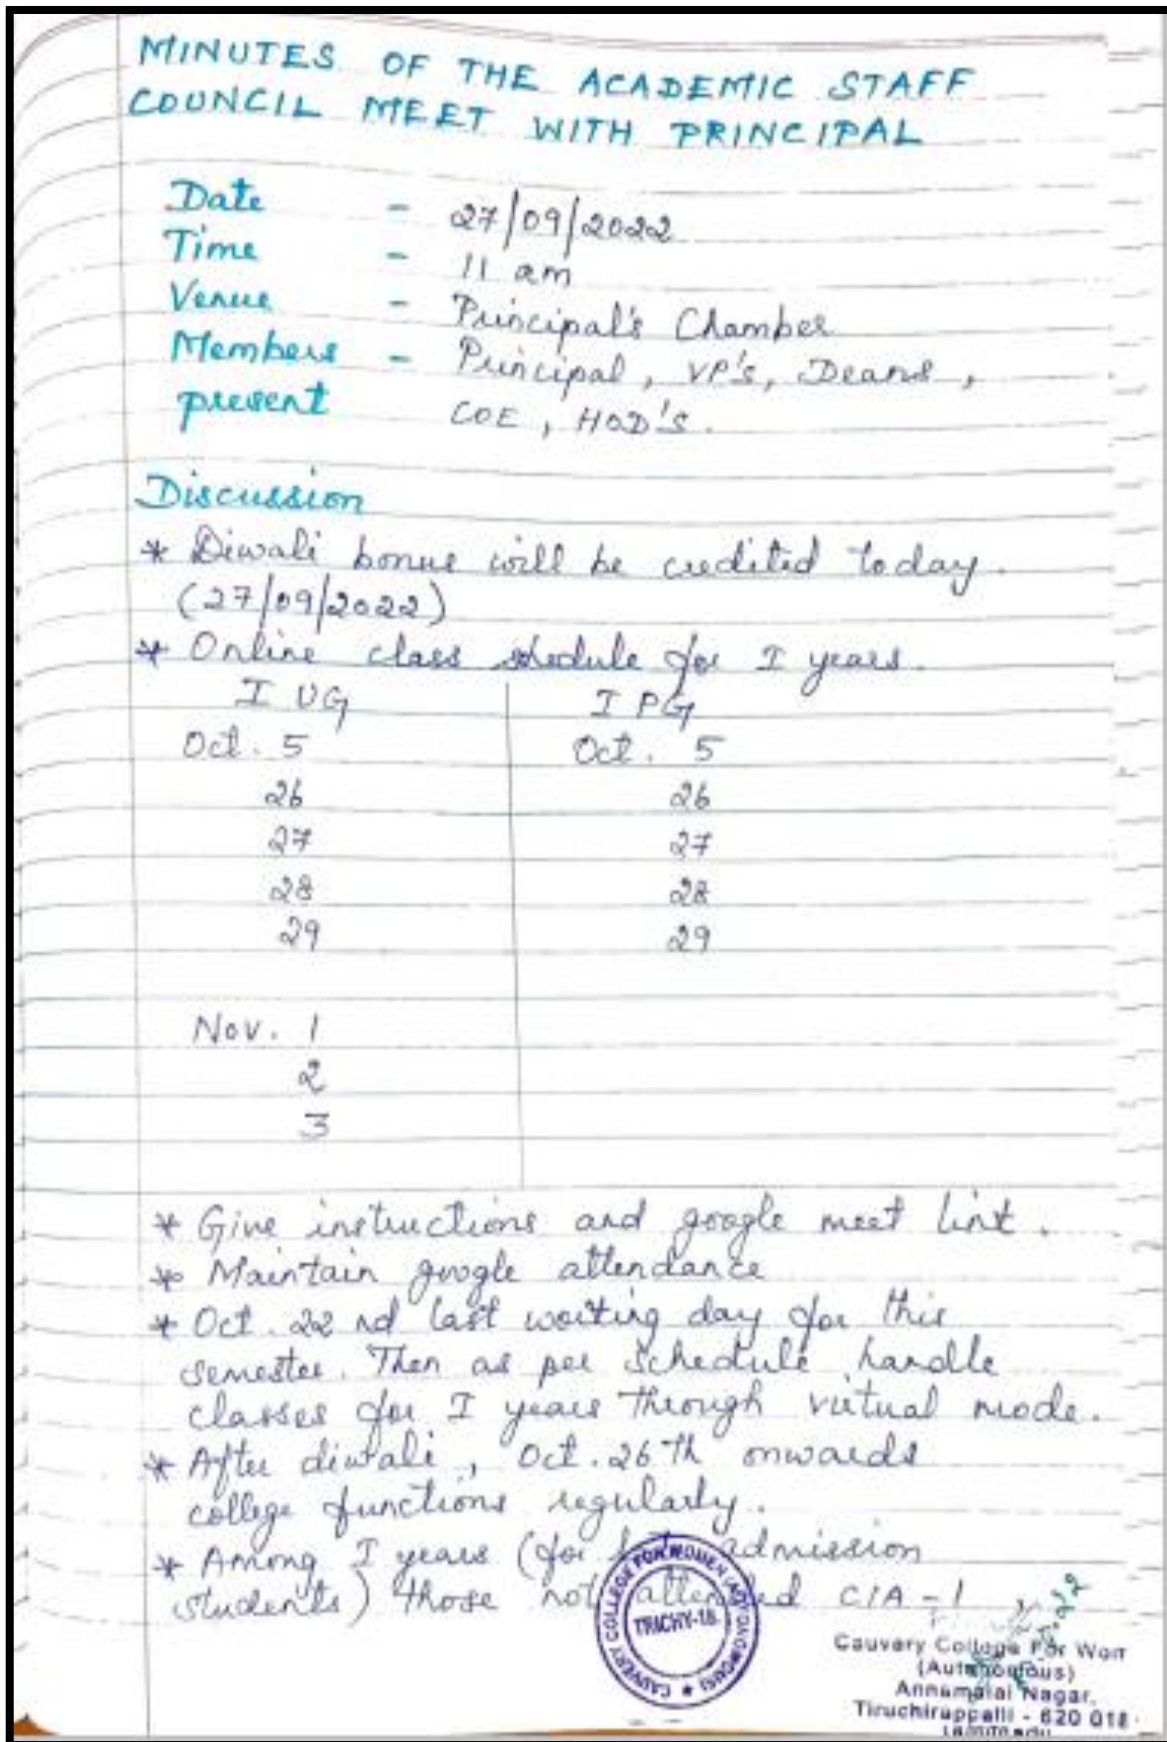 MINUTES OF THE ACADEMIC STAFF
COUNCIL MEET WITH PRINCIPAL
Date - 27/09/2022
Time - 11 am
Venue - Principal's Chamber
Members - Principal, VP's, Deans,
present COE, HOD's.
Discussion
* Diwali bonus will be credited today.
(27/09/2022)
* Online class shedule for I years.
I UG I PG
Oct. 5 Oct. 5
26 26
27 27
28 28
29 29
Nov. 1
2
3
* Give instructions and google meet link.
* Maintain google attendance
* Oct. 22 nd last working day for this
semester. Then as per schedule handle
classes for I years through virtual mode.
* After diwali, Oct. 26th onwards
college functions regularly.
* Among I years (for admission
students) those not attended CIA - 1,
CAUVERY COLLEGE FOR WOMEN (AUTONOMOUS)
TRICHY-18
Cauvery College For Wom
(Autonomous)
Annamalai Nagar,
Tiruchirappalli - 620 018
Tamilnadu